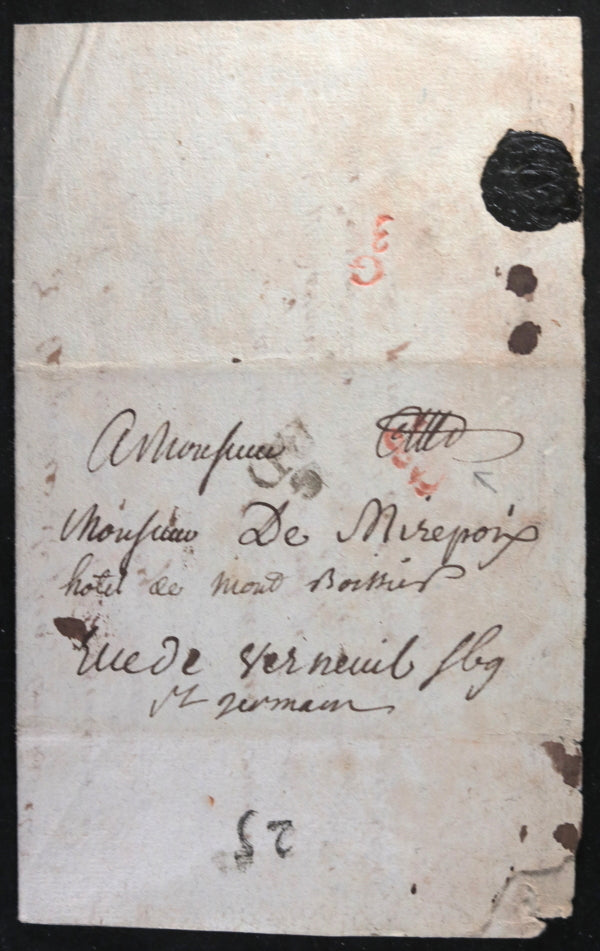 A Monsieur
Monsieur De Mirepoix
hotel de Mont Boissier
Rue de Verneuil fbg
st germain